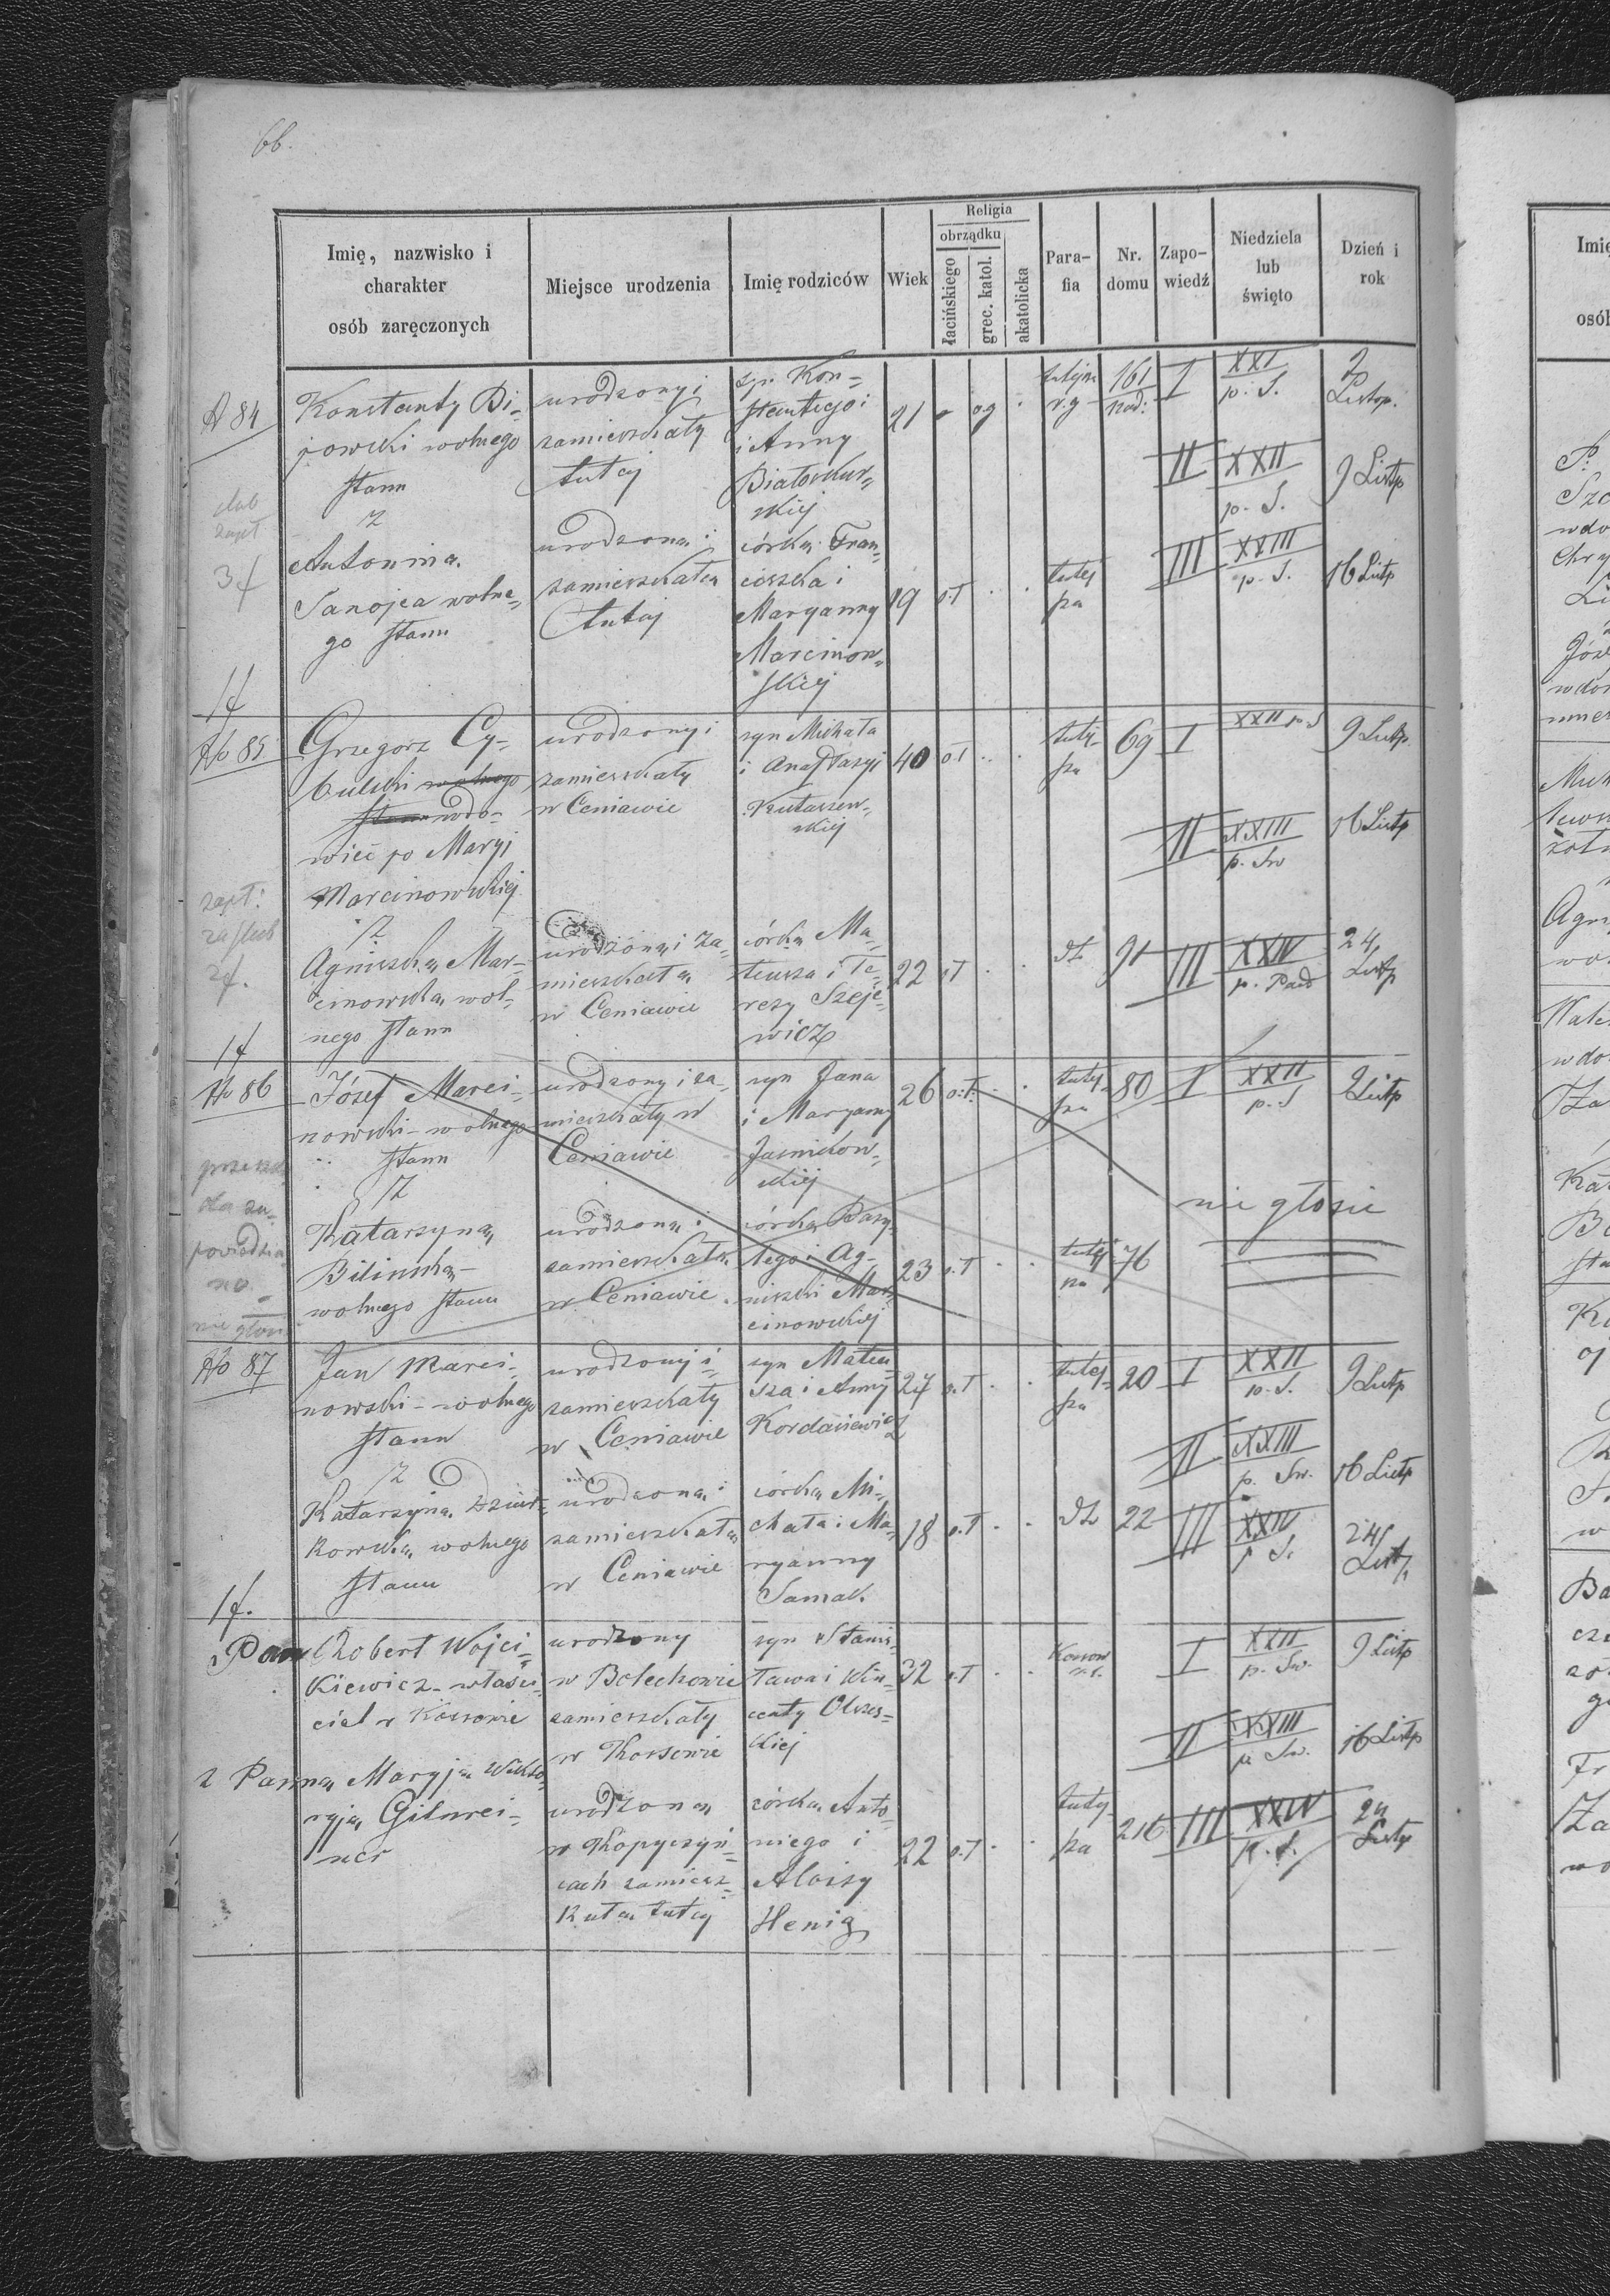 66.
Imię, nazwisko i
charakter
osób zaręczonych
Miejsce urodzenia
Imię rodziców
Wiek
Religia
obrządku
łacińskiego
grec. katol.
akatolicka
Para-
fia
Nr.
domu
Zapo-
wiedź
Niedziela
lub
święto
Dzień i
rok
No 84
Konstanty Bi-
jowski wolnego
stanu
z
Antonina
Sanojca wolne-
go stanu
urodzony i
zamieszkały
tutaj
urodzona i
zamieszkała
tutaj
syn Kon-
stantego i
i Anny
Białoskur-
skiej
córka Fran-
ciszka i
Maryanny
Marcinow-
skiej
21
19
o.ł
161
I
XXI
p. S.
2
Listop.
II
XXII
p. S.
9 Listp
III
XXIII
p. S.
16 Listp
3f
1f
No 85
Grzegorz Cy-
bulski wolnego
stanu wdo-
wiec po Maryi
Marcinowskiej
z
Agnieszka Mar-
cinowska wol-
nego stanu
urodzony i
zamieszkały
w Ceniawie
urodzona i za-
mieszkała
w Ceniawie
syn Michała
i Anastazyi
córka Ma-
teusza i Te-
resy Szeje-
wicz
40
o.ł
22
o.ł
tutej-
sza
69
91
I
XXII p. S
9 Listp
II
XXIII
p. Sw
16 Listp
III
XXIV
24
Listp
2f.
1f
No 86
Józef Marci-
nowski - wolnego
stanu
z
Katarzyna
Bilinska
wolnego stanu
urodzony i za-
mieszkały w
Ceniawie
urodzona i
zamieszkała
w Ceniawie
syn Jana
i Maryanny
Jasinkow-
skiej
córka Bazy-
lego i Ag-
nieszki Mar-
cinowskiej
26
o.ł
23
o.ł
tutej-
sza
80
76
I
XXII
p. S
9 Listp
nie głosić
No 87
Jan Marci-
nowski - wolnego
stanu
z
Katarzyna Dziur-
kowska wolnego
stanu
urodzony i
zamieszkały
w Ceniawie
urodzona i
zamieszkała
w Ceniawie
syn Mateu-
sza i Anny
Kordasiewicz
córka Mi-
chała i Ma-
ryanny
Samak
27
o.ł
18
o.ł
tutej-
sza
20
22
I
XXII
p. S.
9 Listp
II
XXIII
p. Sw.
16 Listp
III
XXIV
p S.
24
Listp
1f.
Pan Robert Wojci-
kiewicz - właści-
ciel w Kossowie
z Panna Maryja Wikto-
ryja Gilnrei-
ner
urodzony
w Bolechowie
zamieszkały
w Kossowie
urodzona
w Kopyczyń-
cach zamiesz-
kała tutaj
syn Stanis-
ława i Win-
centy Olszes-
kiej
córka Anto-
niego i
Aloizy
Henig
32
o.ł
22
o.ł
Kossow
tutej-
sza
216
I
XXII
p. Sw.
9 Listp
II
XXIII
p Sw.
16 Listp
III
XXIV
p. S.
24
Listp